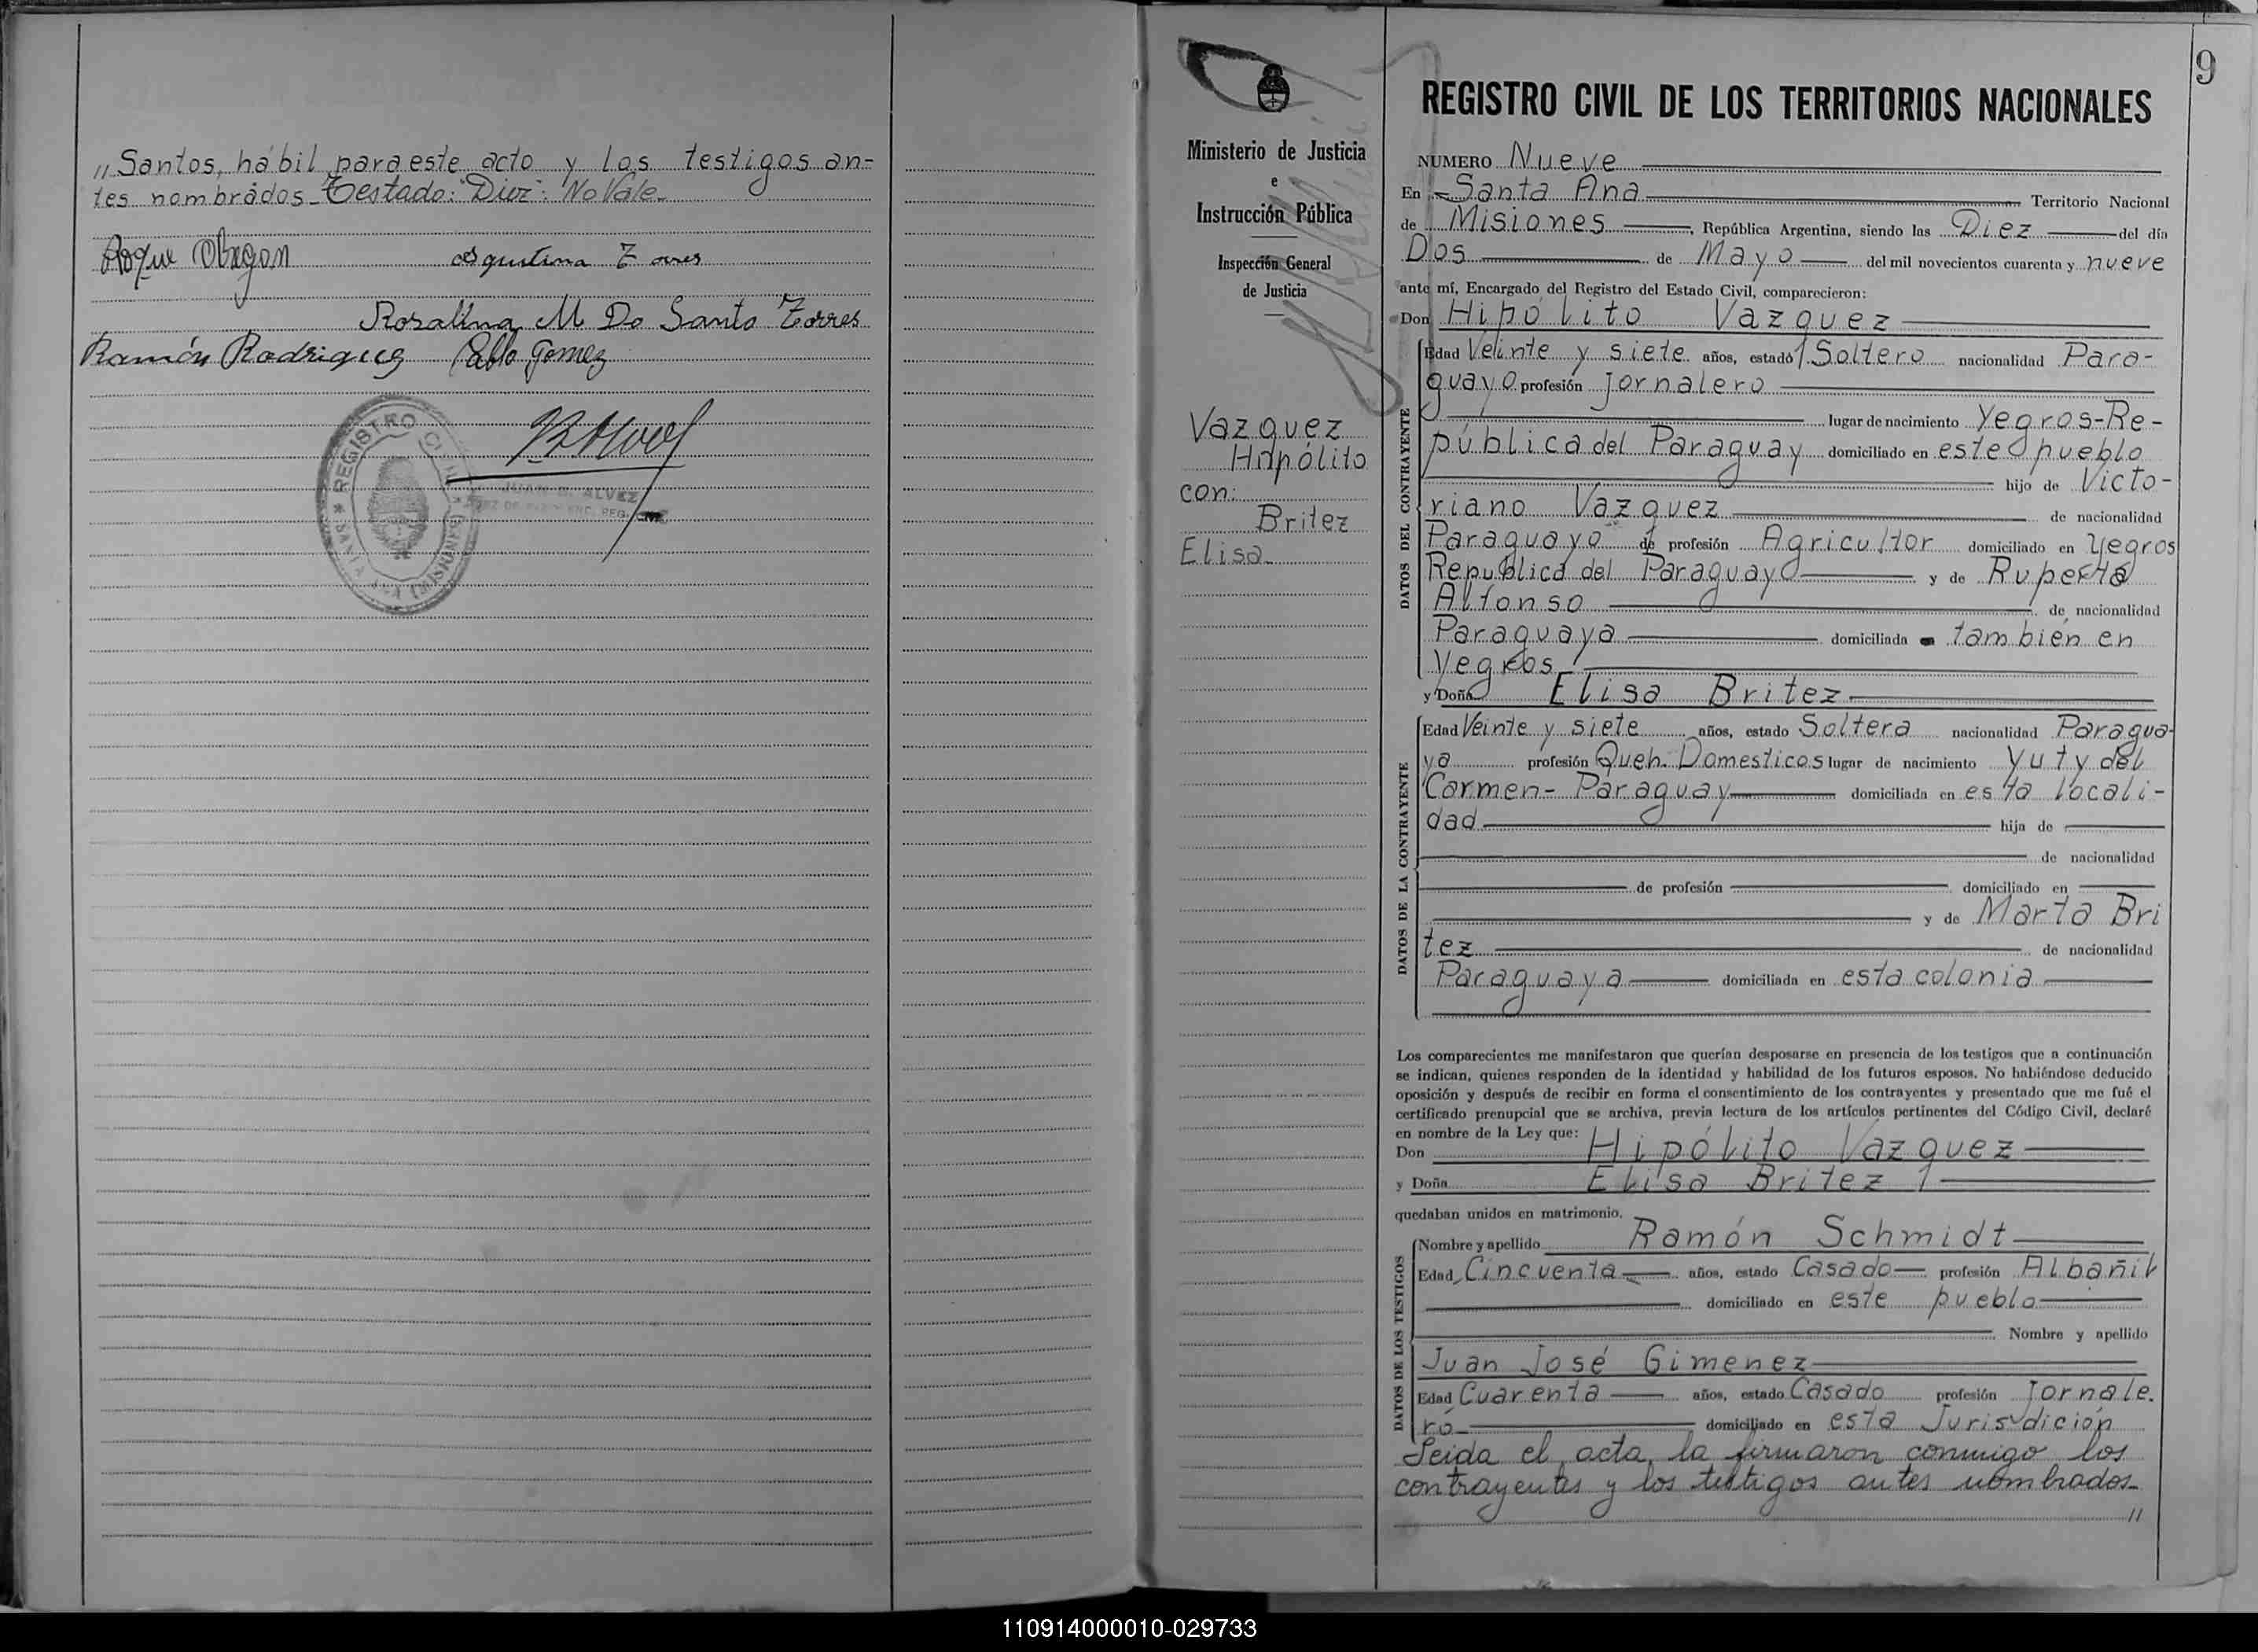 „Santos, hábil para este acto y los testigos an-
tes nombrados. Testado: "Diez": No Vale.
Roque Obregon
Agustina Torres
Rosalina M Do Santo Torres
Ramón Rodrigues Pablo Gomez
REGISTRO CIVIL
* SANTA ANA (MISIONES) *
JUAN B. ALVEZ
JUEZ DE PAZ Y ENC. REG. CIVIL
9
Ministerio de Justicia
e
Instrucción Pública
Inspección General
de Justicia
Vazquez
Hipólito
con:
Britez
Elisa.
REGISTRO CIVIL DE LOS TERRITORIOS NACIONALES
NUMERO Nueve
En Santa Ana Territorio Nacional
de Misiones, República Argentina, siendo las Diez del día
Dos de Mayo del mil novecientos cuarenta y nueve
ante mí, Encargado del Registro del Estado Civil, comparecieron:
Don Hipólito Vazquez
DATOS DEL CONTRAYENTE
Edad Veinte y siete años, estado Soltero nacionalidad Para-
guayo profesión jornalero
lugar de nacimiento Yegros-Re-
pública del Paraguay domiciliado en este pueblo
hijo de Victo-
riano Vazquez de nacionalidad
Paraguayo de profesión Agricultor domiciliado en Yegros
Republica del Paraguay y de Ruperta
Alfonso de nacionalidad
Paraguaya domiciliada también en
Yegros
y Doña Elisa Britez
DATOS DE LA CONTRAYENTE
Edad Veinte y siete años, estado Soltera nacionalidad Paragua-
ya profesión Queh. Domesticos lugar de nacimiento Yuty del
Carmen- Paraguay domiciliada en esta locali-
dad hija de
de nacionalidad
de profesión domiciliado en
y de Marta Bri
tez de nacionalidad
Paraguaya domiciliada en esta colonia
Los comparecientes me manifestaron que querían desposarse en presencia de los testigos que a continuación
se indican, quienes responden de la identidad y habilidad de los futuros esposos. No habiéndose deducido
oposición y después de recibir en forma el consentimiento de los contrayentes y presentado que me fué el
certificado prenupcial que se archiva, previa lectura de los artículos pertinentes del Código Civil, declaré
en nombre de la Ley que:
Don Hipólito Vazquez
y Doña Elisa Britez
quedaban unidos en matrimonio.
DATOS DE LOS TESTIGOS
Nombre y apellido Ramón Schmidt
Edad Cincuenta años, estado Casado profesión Albañil
domiciliado en este pueblo
Nombre y apellido
Juan José Gimenez
Edad Cuarenta años, estado Casado profesión Jornale.
ro domiciliado en esta Jurisdición
Leida el acta, la firmaron conmigo los
contrayentes y los testigos antes nombrados.
"
110914000010-029733